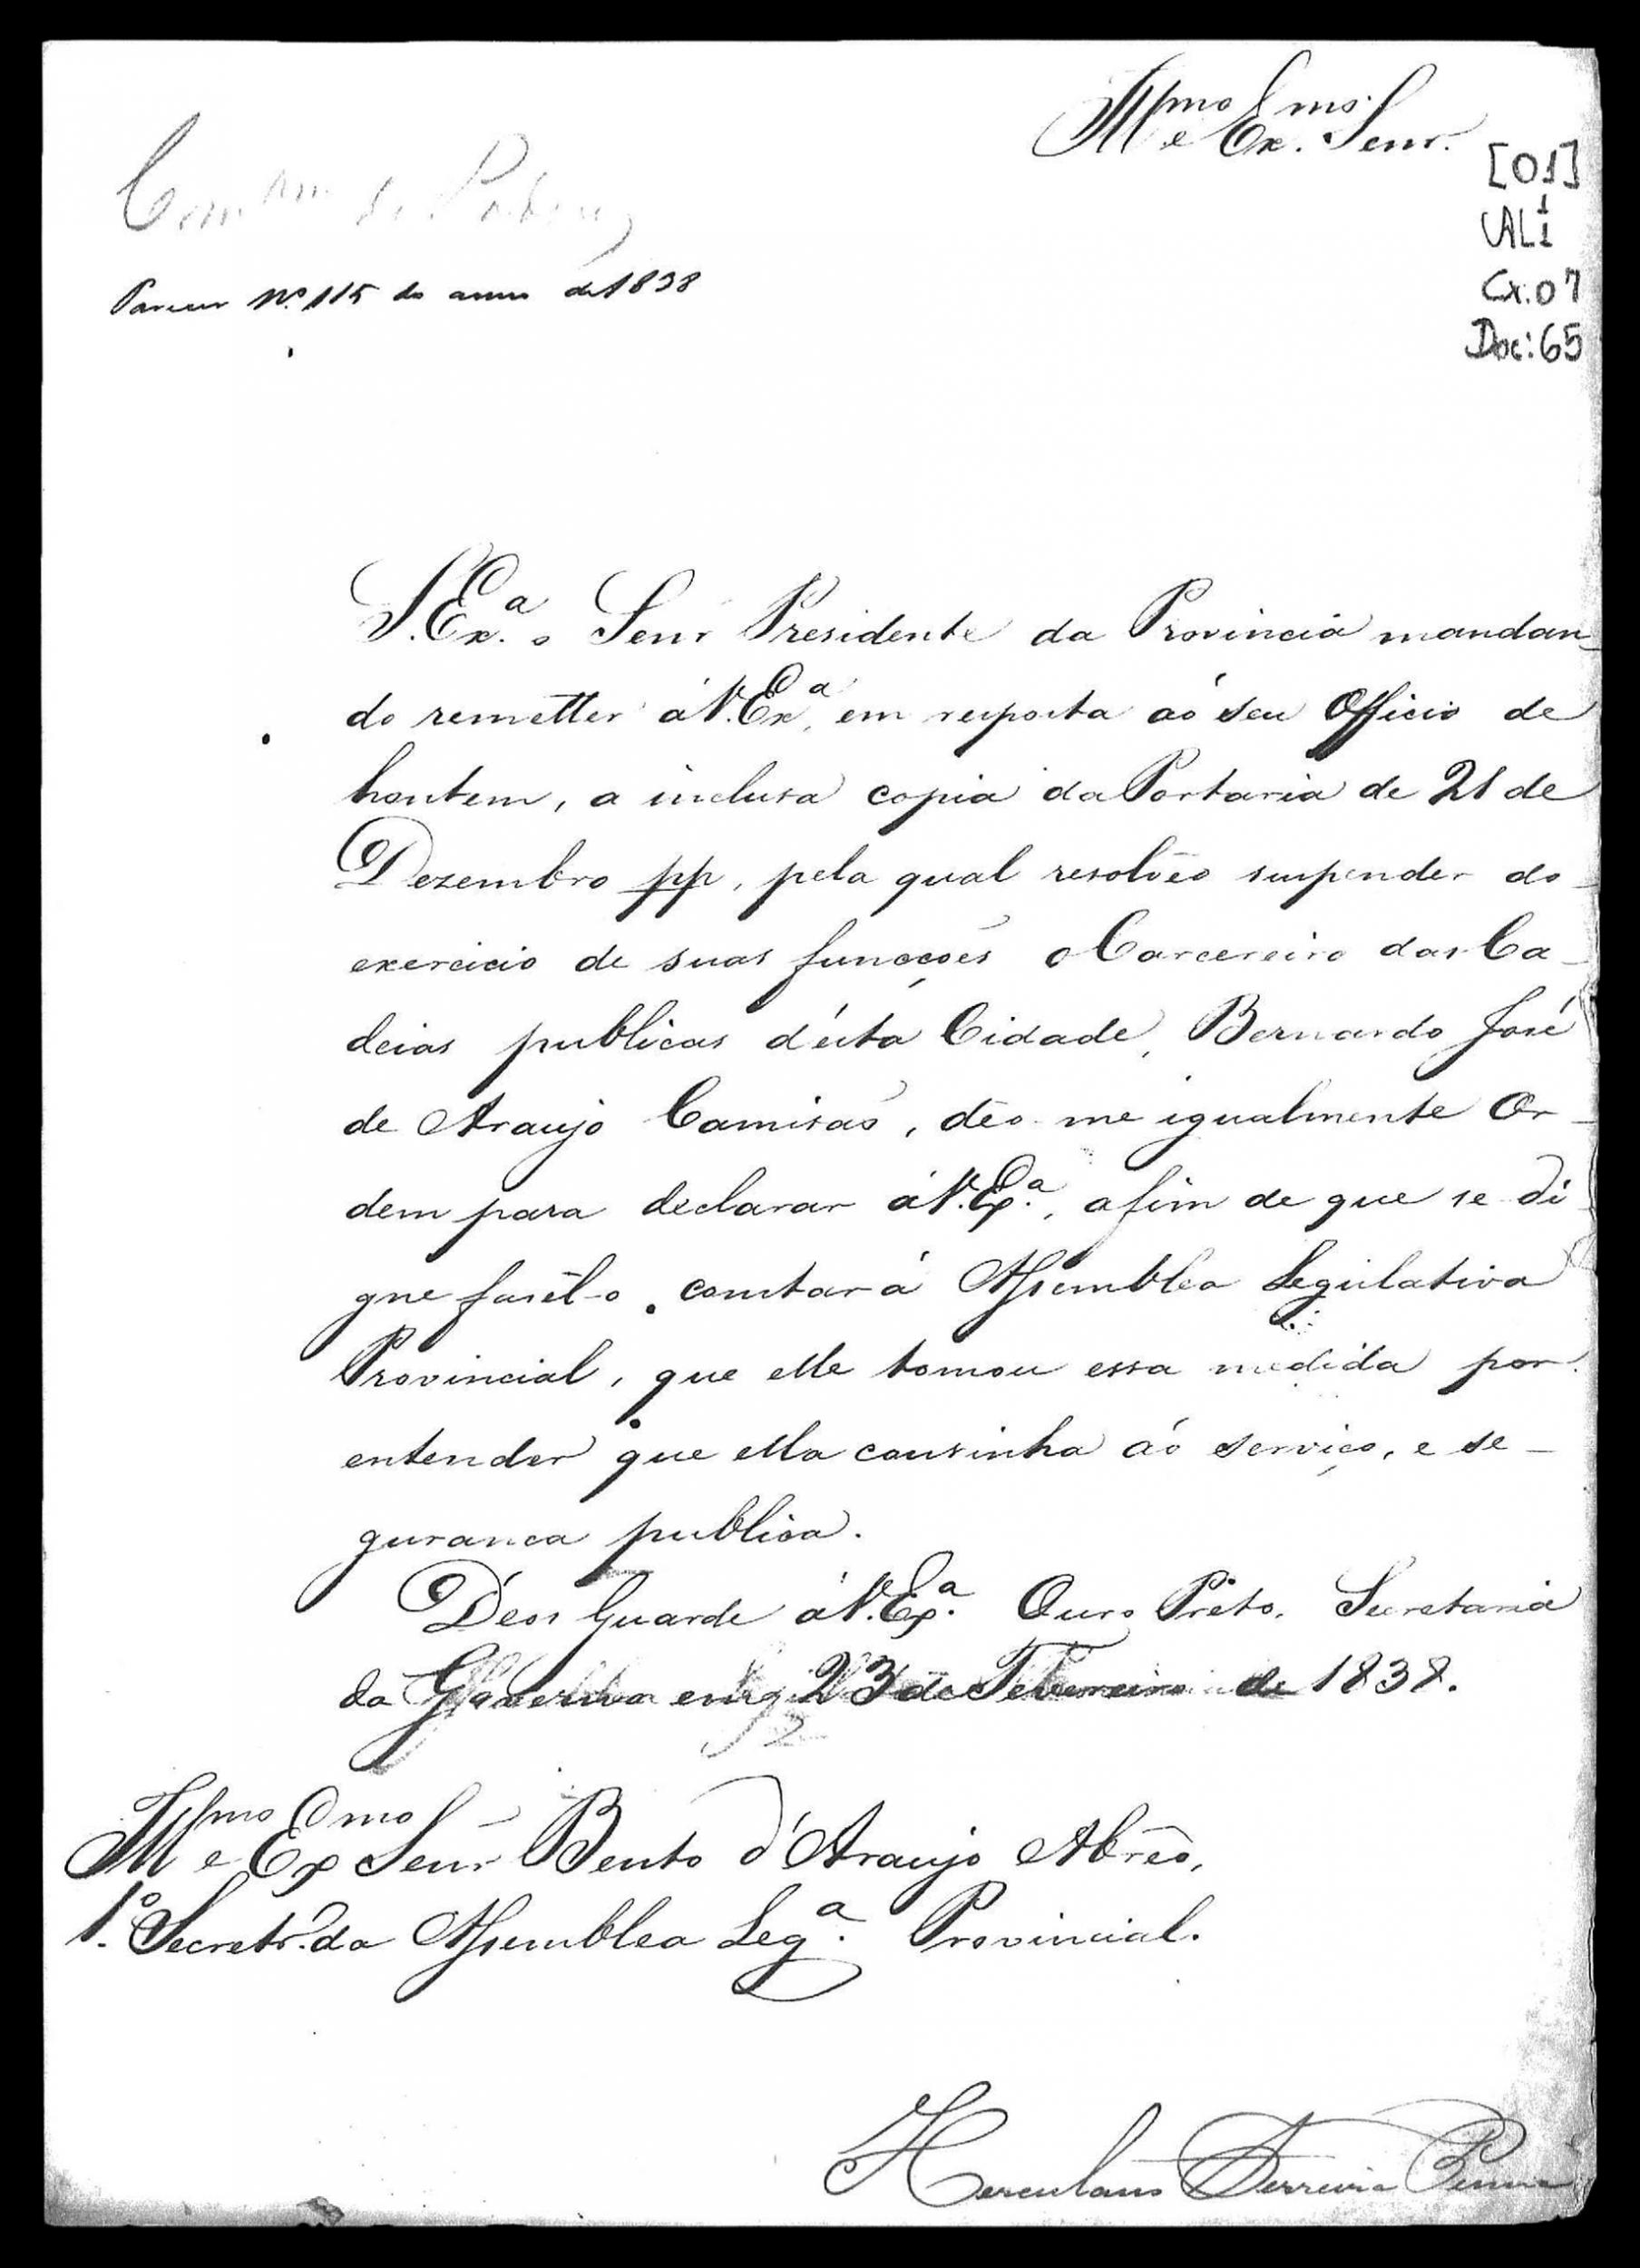 Illmo e Exmo Senr.
[01]
AL1
Cx.07
Doc:65
Parecer Nº 115 do anno de 1838
S. Exª. o Senr Presidente da Provincia mandan-
do remetter á V. Exª, em resposta áo seu Officio de
hontem, a inclusa copia da Portaria de 21 de
Dezembro pp, pela qual resolvêo suspender do
exercicio de suas funcções o Carcereiro das Ca-
deias publicas d'ésta Cidade, Bernardo José
de Araujo Camisaõ, dêo-me igualmente Or-
dem para declarar á V. Exª., afim de que se di-
gne fasêl-o constar á Assemblea Legislativa
Provincial, que elle tomou essa medida por
entender que ella convinha áo serviço, e se-
gurança publica.
Déos Guarde á V. Exª. Ouro Prêto. Secretaria
do Governo em 23 de Fevereiro de 1838.
Illmo e Exmo Senr Bento d'Araujo Abrêo,
1º. Secretrº. da Assemblea Legª. Provincial.
Herculano Ferreira Penna